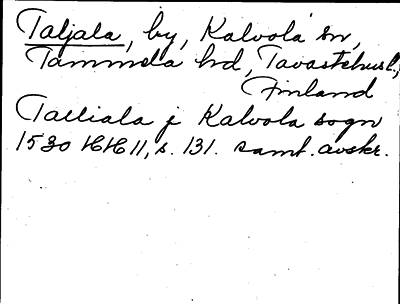 Taljala, by, Kalvola sn,
Tammela hd, Tavastehus l.,
Finland
Talliala j Kalvola sogn
1530 HH II, s. 131. samt. avskr.